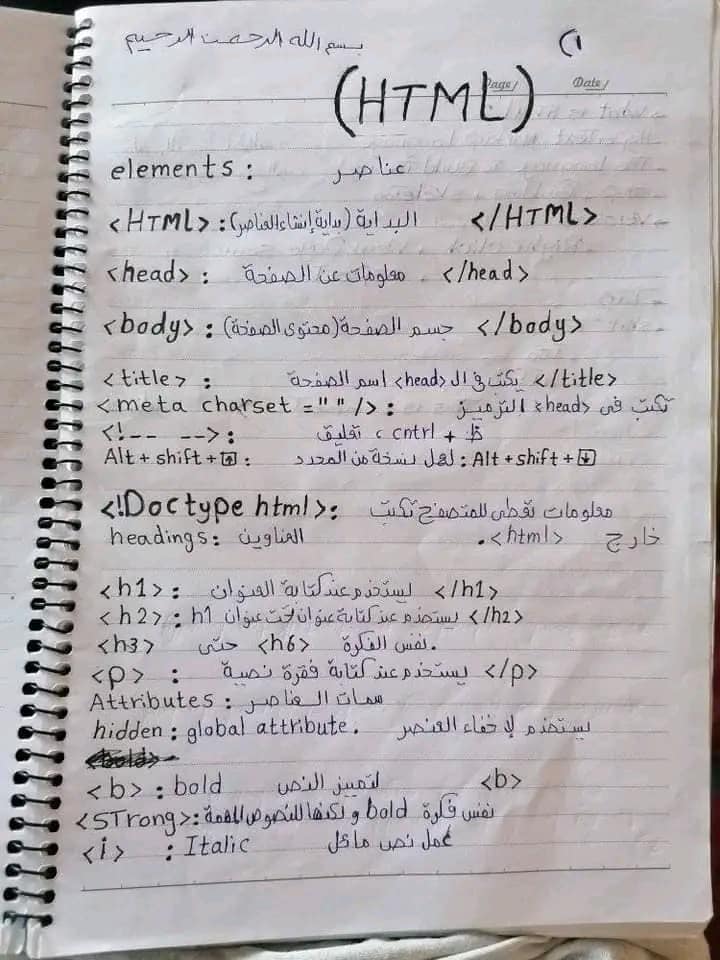 بسم الله الرحمن الرحيم
(1
Page/ Date/
(HTML)
elements : عناصر
<HTML> : البداية (بداية إنشاء العناصر) </HTML>
<head> : معلومات عن الصفحة . </head>
<body> : جسم الصفحة (محتوى الصفحة) </body>
<title> : يكتب في ال <head> اسم الصفحة </title>
<meta charset =" " /> : تكتب في <head> الترميز
<!-- --> : تعليق ، cntrl + ظ
Alt + shift + ↑ : لعمل نسخة من المحدد : Alt + shift + ↓
<!Doctype html> : معلومات تعطى للمتصفح تكتب
خارج <html>.
headings : العناوين
<h1> : يستخدم عند كتابة العنوان </h1>
<h2> : يستخدم عند كتابة عنوان تحت عنوان h1 </h2>
<h3> حتى <h6> نفس الفكرة.
<p> : يستخدم عند كتابة فقرة نصية </p>
Attributes : سمات العناصر
hidden : global attribute. يستخدم لإخفاء العنصر
<b> : bold لتمييز النص <b>
<STrong> : نفس فكرة bold ولكنها للنصوص المهمة
<i> : Italic عمل نص مائل